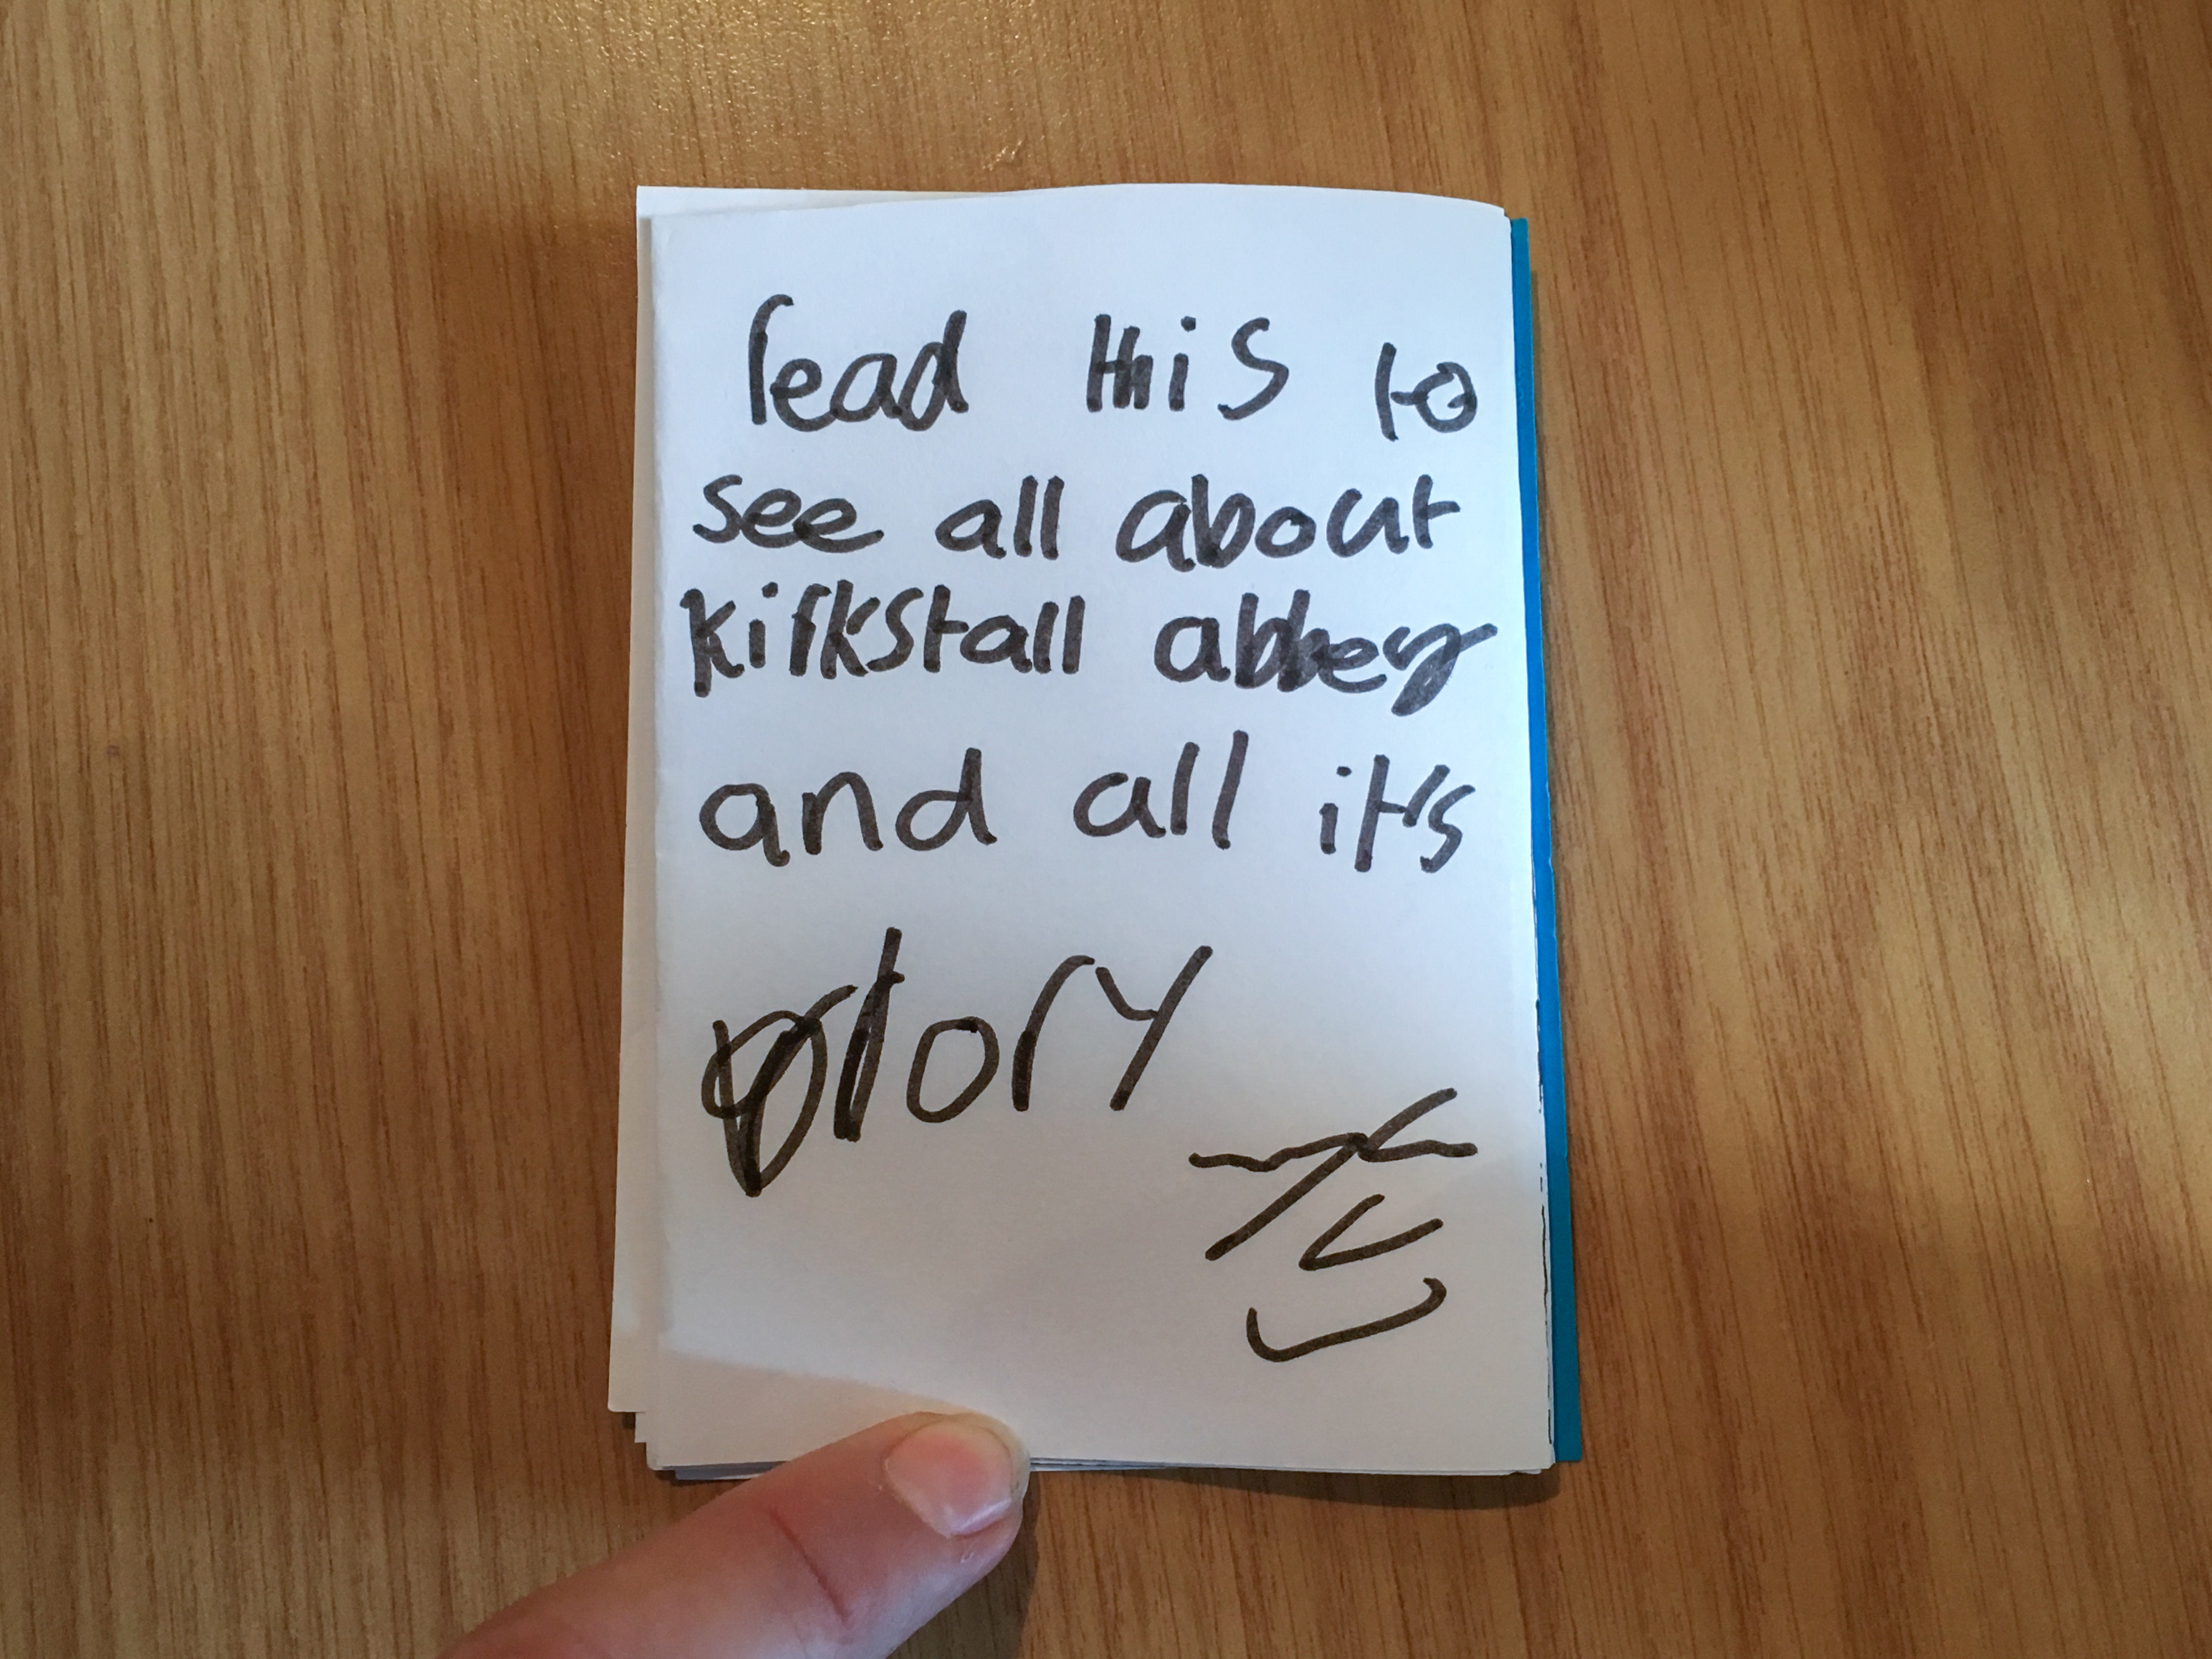 read this to
see all about
kirkstall abbey
and all it's
glory